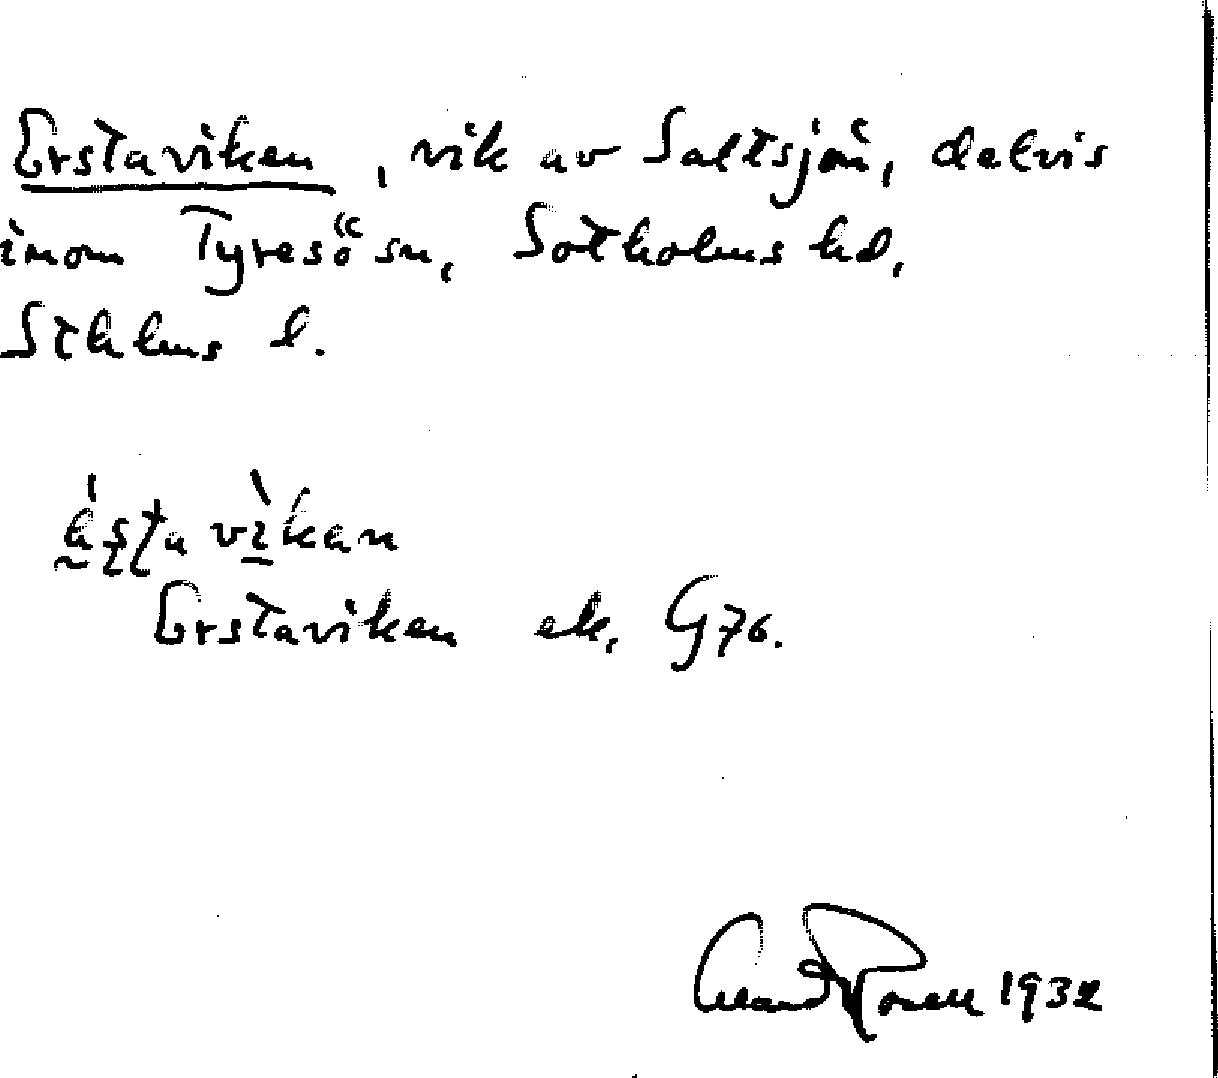 Erstaviken, vik av Saltsjön, delvis
inom Tyresö sn, Sotholms hd,
Sthlms l.
Erstaviken ek. G76.
1932